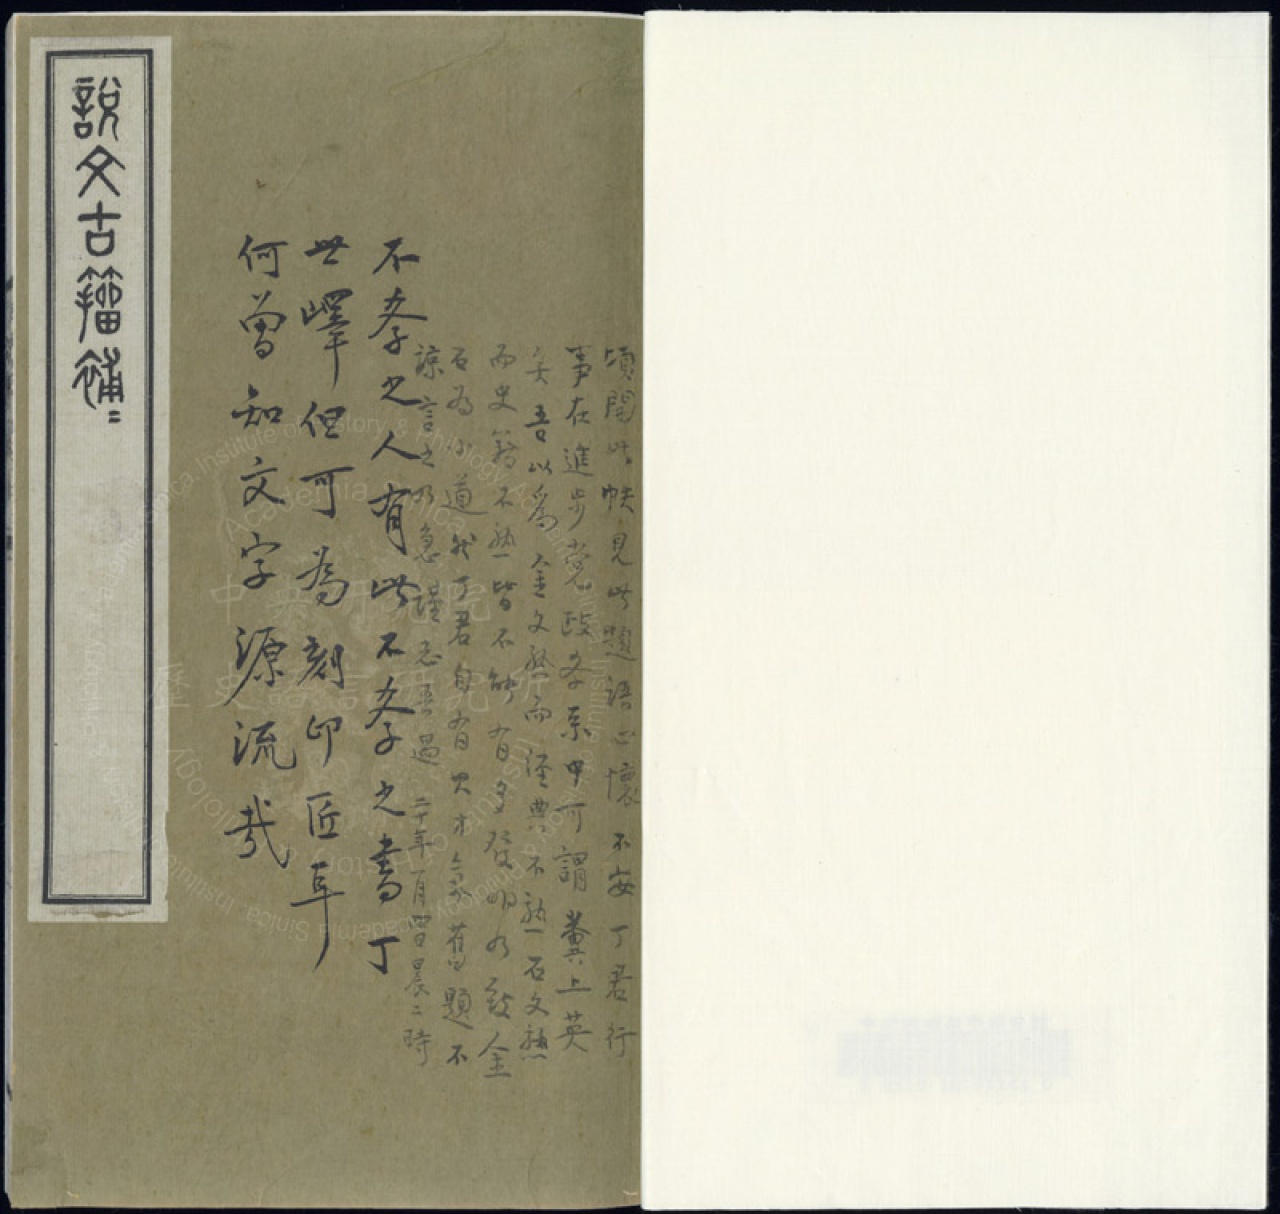 頃閱此帙見此題語心懷不安丁君行
事在進步黨政客系中可謂糞上英
矣吾以為金文熟而經典不熟石文熟
而史籍不熟皆不能有多發明乃致金
石為小道然丁君自有其才氣舊題不
諒言之乃急謹志吾過 二十年一月四日晨二時
不孝之人有此不孝之書丁
世嶧但可為刻印匠耳
何曾知文字源流哉
說文古籀補〻
中央研究院
歷史語言研究所
Institute of History & Philology, Academia Sinica